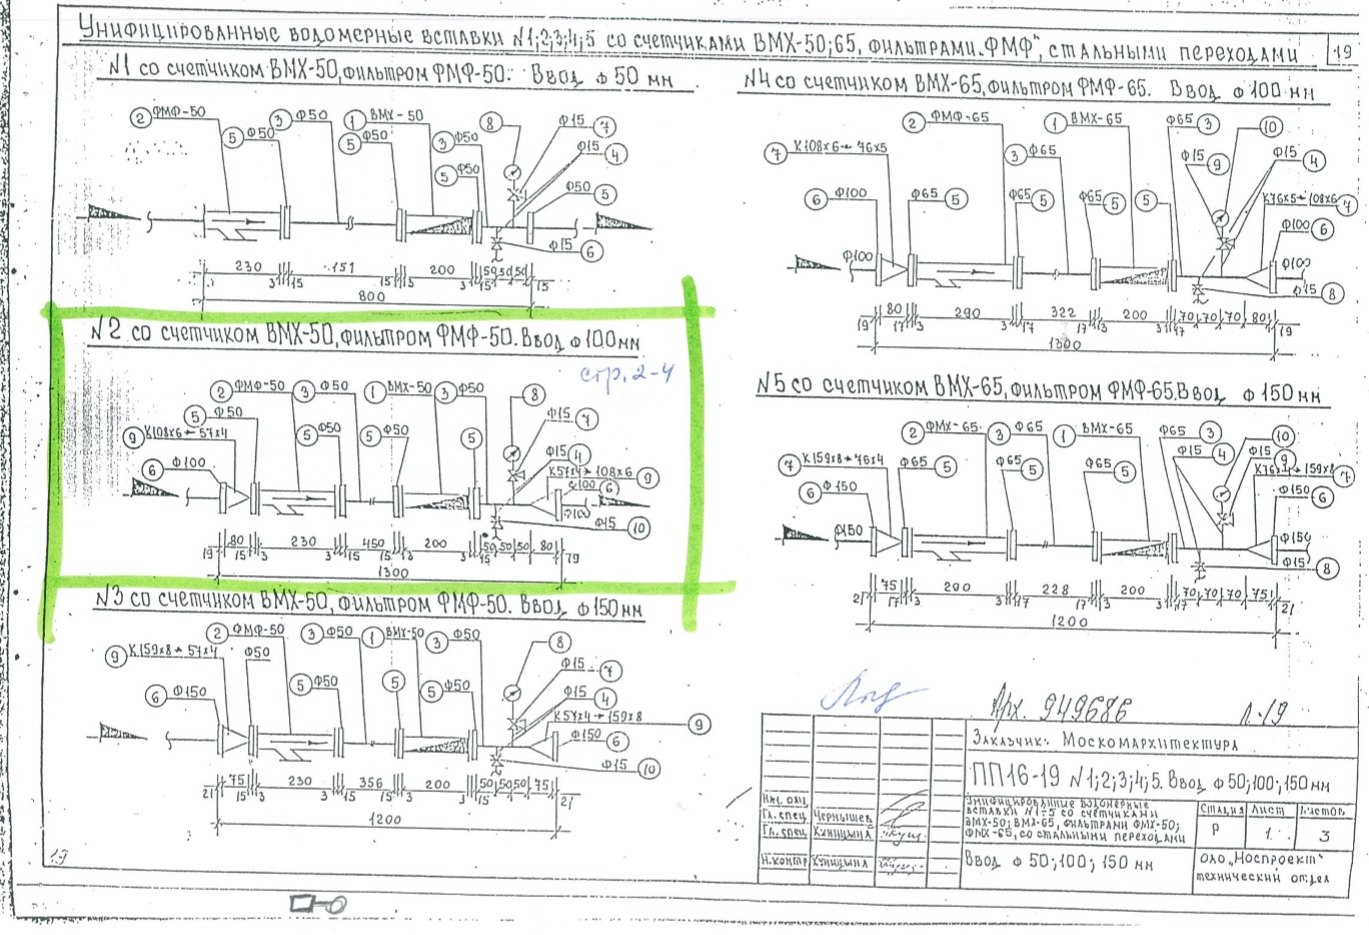 Унифицированные водомерные вставки N1;2;3;4;5 со счетчиками ВМХ-50;65, фильтрами „ФМФ", стальными переходами
19
N1 со счетчиком ВМХ-50, фильтром ФМФ-50. Ввод ф 50 мм
2 ФМФ-50 3 Ф50 1 ВМХ-50 8 Ф15 7
5 Ф50 5 Ф50 3 Ф50 Ф15 4
5 Ф50 Ф50 5
Ф15 6
230 3 15 151 15 3 200 3 15 50 50 50 15
800
N2 со счетчиком ВМХ-50, фильтром ФМФ-50. Ввод ф 100 мм
стр. 2-4
2 ФМФ-50 3 Ф50 1 ВМХ-50 3 Ф50 8
5 Ф50 Ф15 7
9 К108х6 57х4 5 Ф50 5 Ф50 5 Ф15 4
6 Ф100 К57х4 108х6 9
Ф100 6
Ф100
Ф15 10
19 80 15 3 230 3 15 450 15 3 200 3 15 50 50 50 80 19
1300
N3 со счетчиком ВМХ-50, фильтром ФМФ-50. Ввод ф 150 мм
2 ФМФ-50 3 Ф50 1 ВМХ-50 3 Ф50 8
9 К159х8 57х4 Ф50 Ф15 7
6 Ф150 5 Ф50 5 5 Ф50 Ф15 4
К57х4 159х8 9
Ф150 6
Ф15 10
21 75 15 3 230 3 15 356 15 3 200 3 15 50 50 50 75 21
1200
19
N4 со счетчиком ВМХ-65, фильтром ФМФ-65. Ввод ф 100 мм
2 ФМФ-65 1 ВМХ-65 Ф65 3 10
7 К108х6 76х5 3 Ф65 Ф15 9 Ф15 4
6 Ф100 Ф65 5 Ф65 5 Ф65 5 5 К76х5 108х6 7
Ф100 6
Ф100 Ф100
Ф15 8
19 80 17 3 290 3 17 322 17 3 200 3 17 70 70 70 80 19
1300
N5 со счетчиком ВМХ-65, фильтром ФМФ-65. Ввод ф 150 мм
2 ФМХ-65 3 Ф65 1 ВМХ-65 Ф65 3 10
7 К159х8 76х4 Ф65 5 Ф65 5 Ф65 5 Ф15 4 Ф15 9
159х8 7
6 Ф150 Ф150 6
Ф150 Ф150
Ф15 8
21 75 17 3 290 3 17 228 17 3 200 3 17 70 70 70 75 21
1200
Арх. 949686 л.19
Заказчик: Москомархитектура
ПП16-19 N1;2;3;4;5. Ввод ф 50;100;150 мм
Нач. отд.
Гл. спец. Чернышев
Гл. спец. Куницына
Н.контр Куницына
Унифицированные водомерные
вставки N1÷5 со счетчиками
ВМХ-50; ВМХ-65, фильтрами ФМХ-50;
ФМХ-65, со стальными переходами
Стадия Лист Листов
Р 1. 3
Ввод ф 50;100; 150 мм
ОАО „Моспроект"
технический отдел